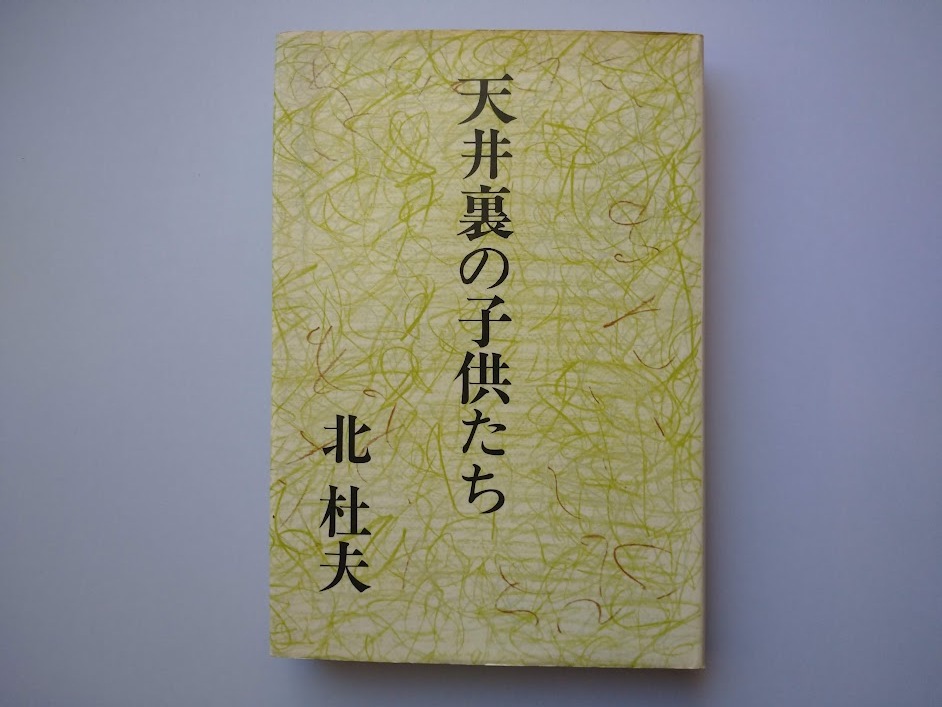 天井裏の子供たち
北 杜夫